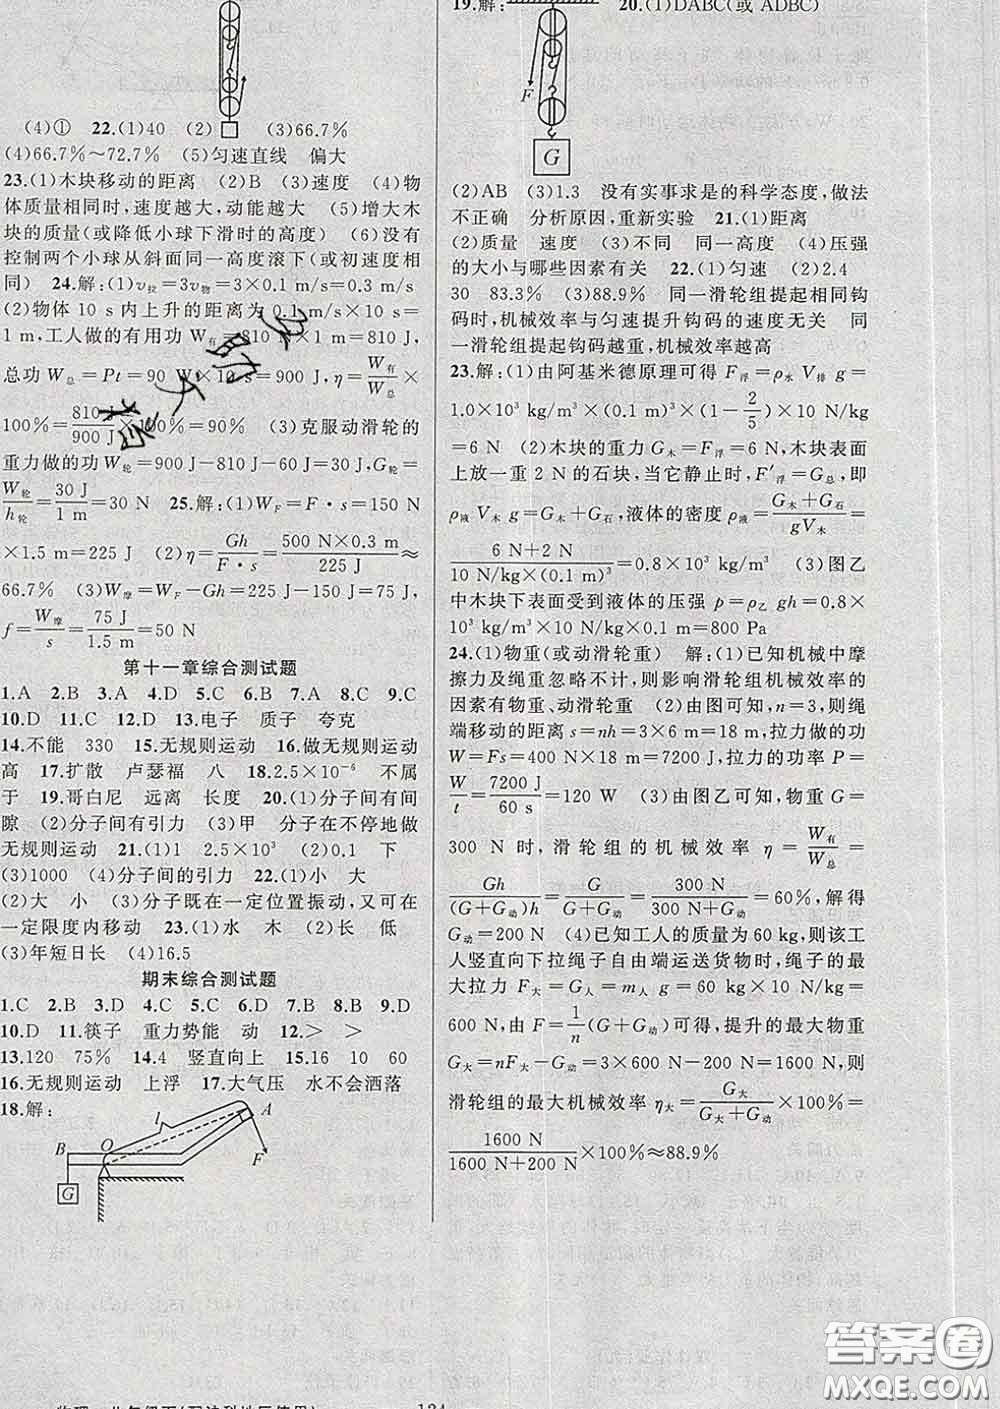 (4)① 22.(1)40 (2) (3)66.7%
(4)66.7%～72.7% (5)匀速直线 偏大
23.(1)木块移动的距离 (2)B (3)速度 (4)物
体质量相同时,速度越大,动能越大 (5)增大木
块的质量(或降低小球下滑时的高度) (6)没有
控制两个小球从斜面同一高度滚下(或初速度相
同) 24.解:(1)v拉=3v物=3×0.1 m/s=0.3 m/s
(2)物体 10 s 内上升的距离为 0.1 m/s×10 s=
1 m,工人做的有用功 W有=810 N×1 m=810 J,
总功 W总=Pt=90 W×10 s=900 J,η=W有/W总×
100%=810 J/900 J×100%=90% (3)克服动滑轮的
重力做的功 W轮=900 J-810 J-60 J=30 J,G轮=
W轮/h轮=30 J/1 m=30 N 25.解:(1)WF=F·s=150 N
×1.5 m=225 J (2)η=Gh/F·s=500 N×0.3 m/225 J≈
66.7% (3)W摩=WF-Gh=225 J-150 J=75 J,
f=W摩/s=75 J/1.5 m=50 N
第十一章综合测试题
1.A 2.B 3.A 4.D 5.C 6.B 7.A 8.C 9.C
10.D 11.C 12.D 13.电子 质子 夸克
14.不能 330 15.无规则运动 16.做无规则运动
高 17.扩散 卢瑟福 八 18.2.5×10⁻⁶ 不属
于 19.哥白尼 远离 长度 20.(1)分子间有间
隙 (2)分子间有引力 (3)甲 分子在不停地做
无规则运动 21.(1)1 2.5×10³ (2)0.1 下
(3)1000 (4)分子间的引力 22.(1)小 大
(2)大 小 (3)分子既在一定位置振动,又可在
一定限度内移动 23.(1)水 木 (2)长 低
(3)年短日长 (4)16.5
期末综合测试题
1.C 2.B 3.D 4.D 5.C 6.C 7.B 8.B 9.D
10.D 11.筷子 重力势能 动 12.＞ ＞
13.120 75% 14.4 竖直向上 15.16 10 60
16.无规则运动 上浮 17.大气压 水不会洒落
18.解:
l A
B O
F
G
19.解: 20.(1)DABC(或 ADBC)
F
G
(2)AB (3)1.3 没有实事求是的科学态度,做法
不正确 分析原因,重新实验 21.(1)距离
(2)质量 速度 (3)不同 同一高度 (4)压强
的大小与哪些因素有关 22.(1)匀速 (2)2.4
30 83.3% (3)88.9% 同一滑轮组提起相同钩
码时,机械效率与匀速提升钩码的速度无关 同
一滑轮组提起钩码越重,机械效率越高
23.解:(1)由阿基米德原理可得 F浮=ρ水 V排 g=
1.0×10³ kg/m³×(0.1 m)³×(1-2/5)×10 N/kg
=6 N (2)木块的重力 G木=F浮=6 N,木块表面
上放一重 2 N 的石块,当它静止时,F′浮=G总,即
ρ液 V木 g=G木+G石,液体的密度 ρ液=G木+G石/gV木=
6 N+2 N/10 N/kg×(0.1 m)³=0.8×10³ kg/m³ (3)图乙
中木块下表面受到液体的压强 p=ρ乙 gh=0.8×
10³ kg/m³×10 N/kg×0.1 m=800 Pa
24.(1)物重(或动滑轮重) 解:(1)已知机械中摩
擦力及绳重忽略不计,则影响滑轮组机械效率的
因素有物重、动滑轮重 (2)由图可知,n=3,则绳
端移动的距离 s=nh=3×6 m=18 m,拉力做的功
W=Fs=400 N×18 m=7200 J,拉力的功率 P=
W/t=7200 J/60 s=120 W (3)由图乙可知,物重 G=
300 N 时,滑轮组的机械效率 η=W有/W总=
Gh/(G+G动)h=G/G+G动=300 N/300 N+G动=60%,解得
G动=200 N (4)已知工人的质量为 60 kg,则该工
人竖直向下拉绳子自由端运送货物时,绳子的最
大拉力 F大=G人=m人 g=60 kg×10 N/kg=
600 N,由 F=1/n(G+G动)可得,提升的最大物重
G大=nF大-G动=3×600 N-200 N=1600 N,则
滑轮组的最大机械效率 η大=G大/G大+G动×100%=
1600 N/1600 N+200 N×100%≈88.9%
答案圈
MXQE.COM